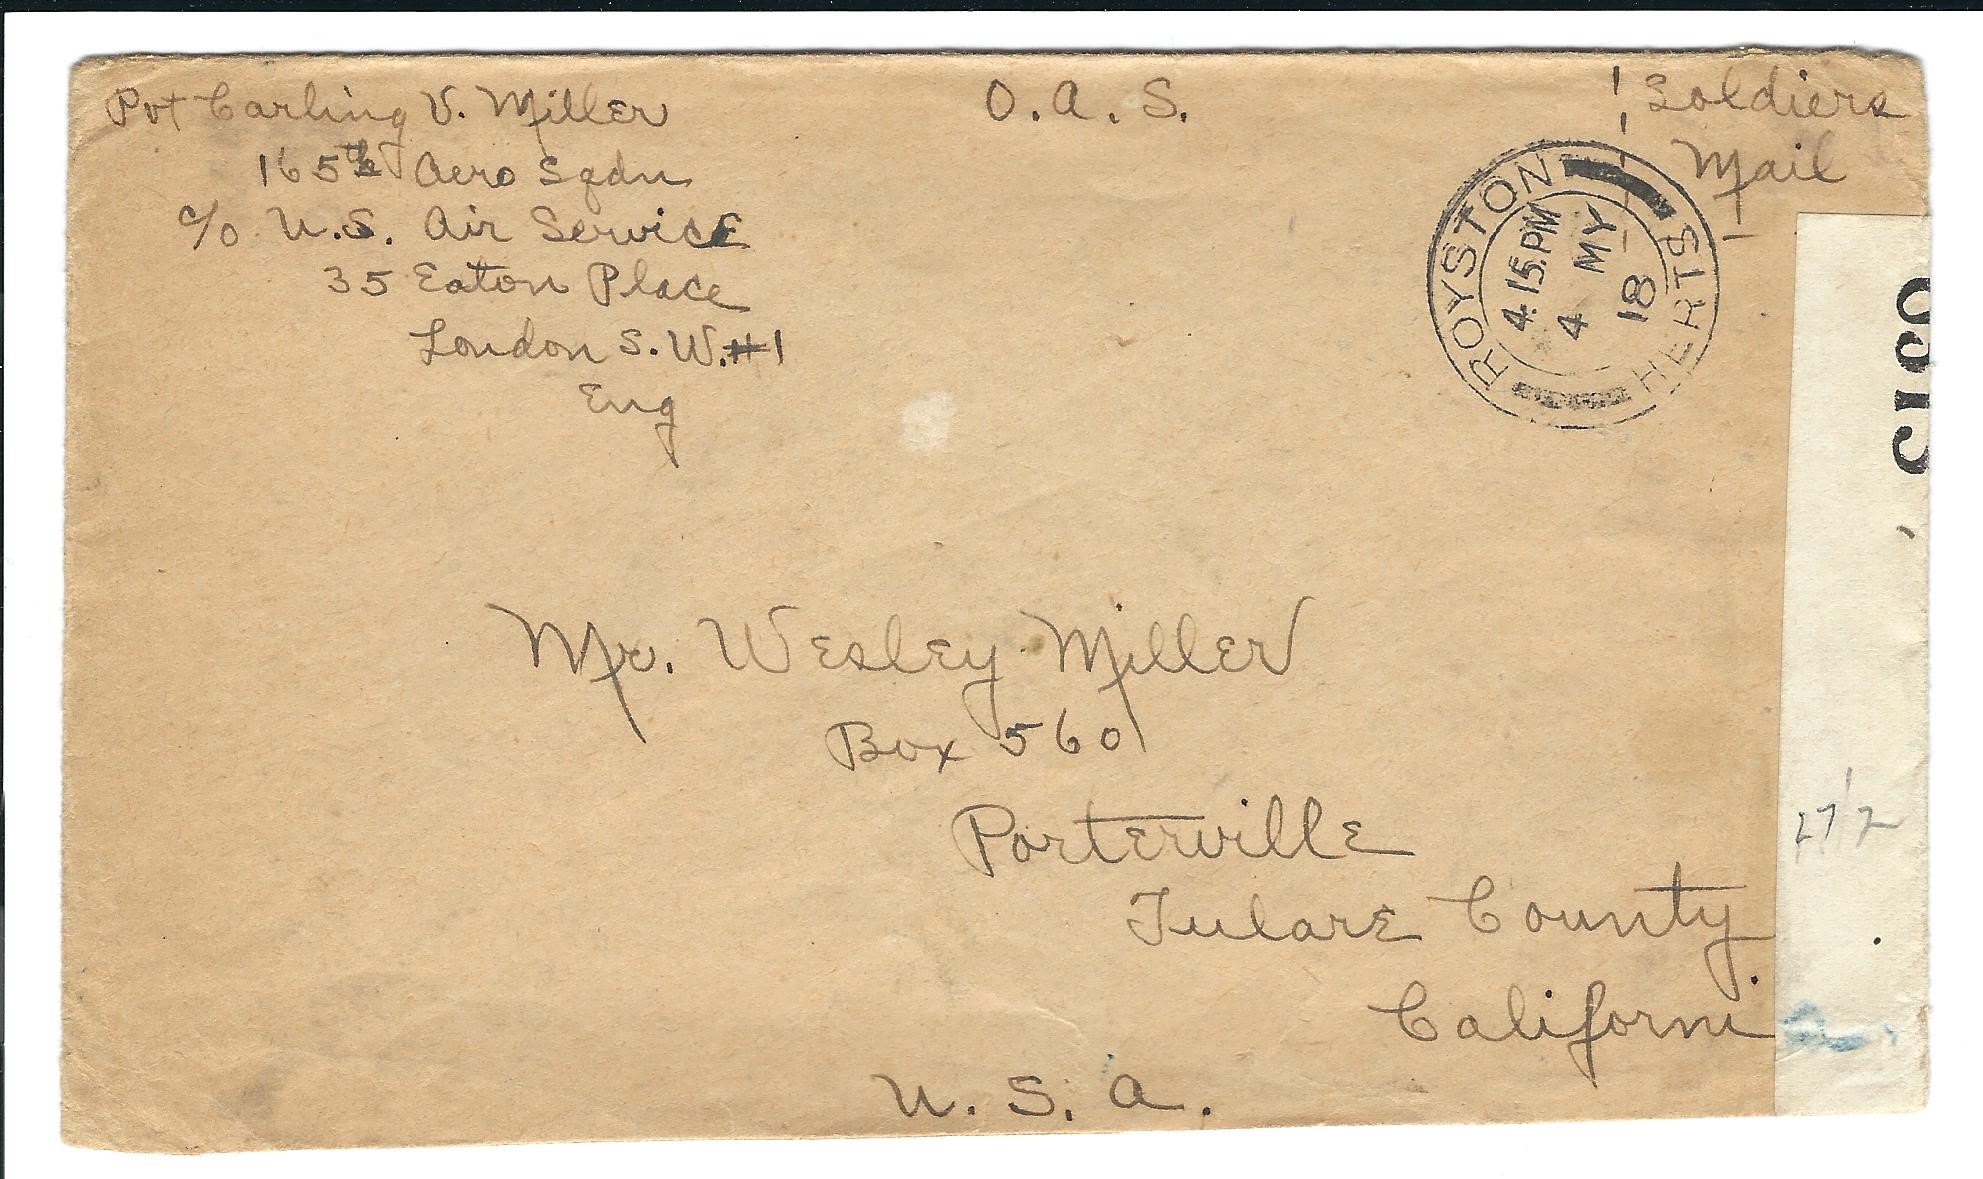 Pvt Carling V. Miller
165th Aero Sqdn
c/o U.S. Air Service
35 Eaton Place
London S.W. #1
Eng
O.A.S.
Soldiers
Mail
ROYSTON
HERTS
4.15.PM
4 MY
18
Mr. Wesley Miller
Box 560
Porterville
Tulare County.
Californi
U.S.A.